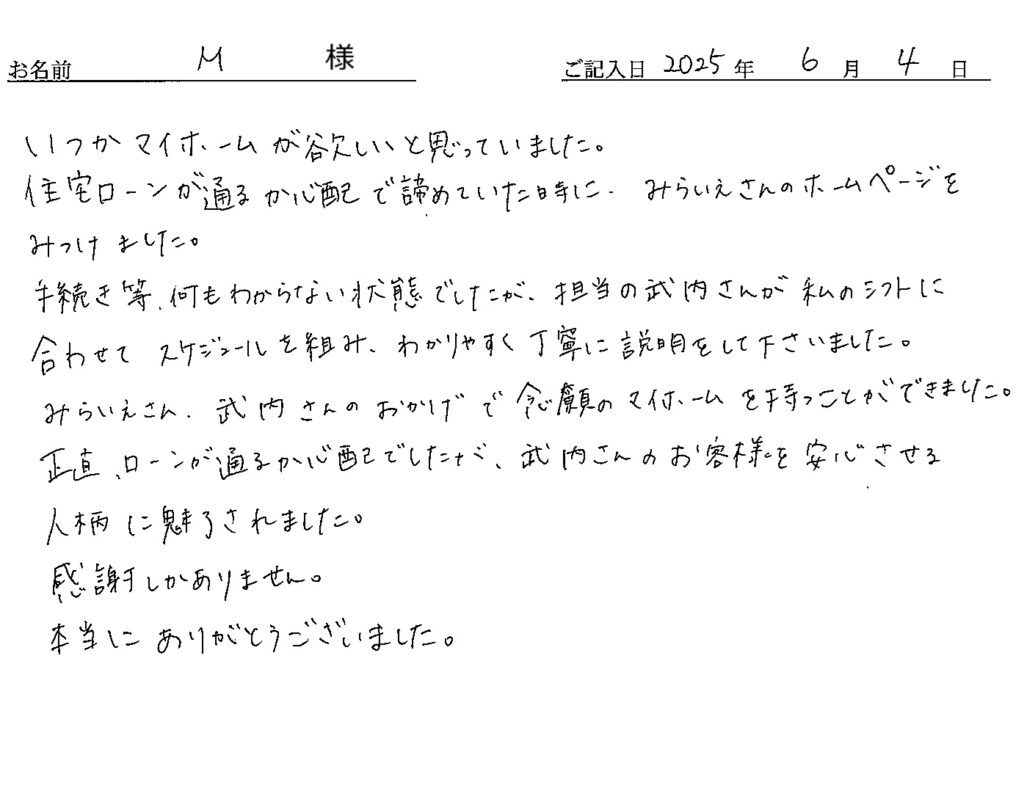 お名前 M 様 ご記入日 2025 年 6 月 4 日
いつかマイホームが欲しいと思っていました。
住宅ローンが通るか心配で諦めていた時に、みらいえさんのホームページを
みつけました。
手続き等、何もわからない状態でしたが、担当の武内さんが私のシフトに
合わせてスケジュールを組み、わかりやすく丁寧に説明をして下さいました。
みらいえさん、武内さんのおかげで念願のマイホームを持つことができました。
正直、ローンが通るか心配でしたが、武内さんのお客様を安心させる
人柄に魅了されました。
感謝しかありません。
本当にありがとうございました。